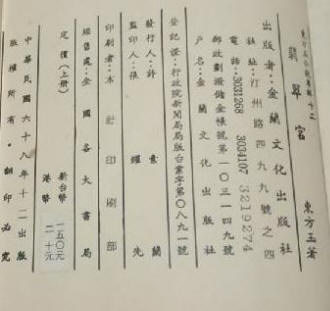 翡翠宮
東方玉著
出版者：金蘭文化出版社
社址：汀州路四九九號之四
電話：3031268 3034107 3219274
郵政劃撥儲金帳號第一〇三一四九號
戶名：金蘭文化出版社
登記證：行政院新聞局局版台業字第〇八九一號
發行人：許素蘭
監印人：張耀先
印刷者：本社印刷部
經售處：全國各大書局
定價（上册） 新台幣 一五〇元
港幣 二十元
中華民國六十八年十二出版
版權所有・翻印必究